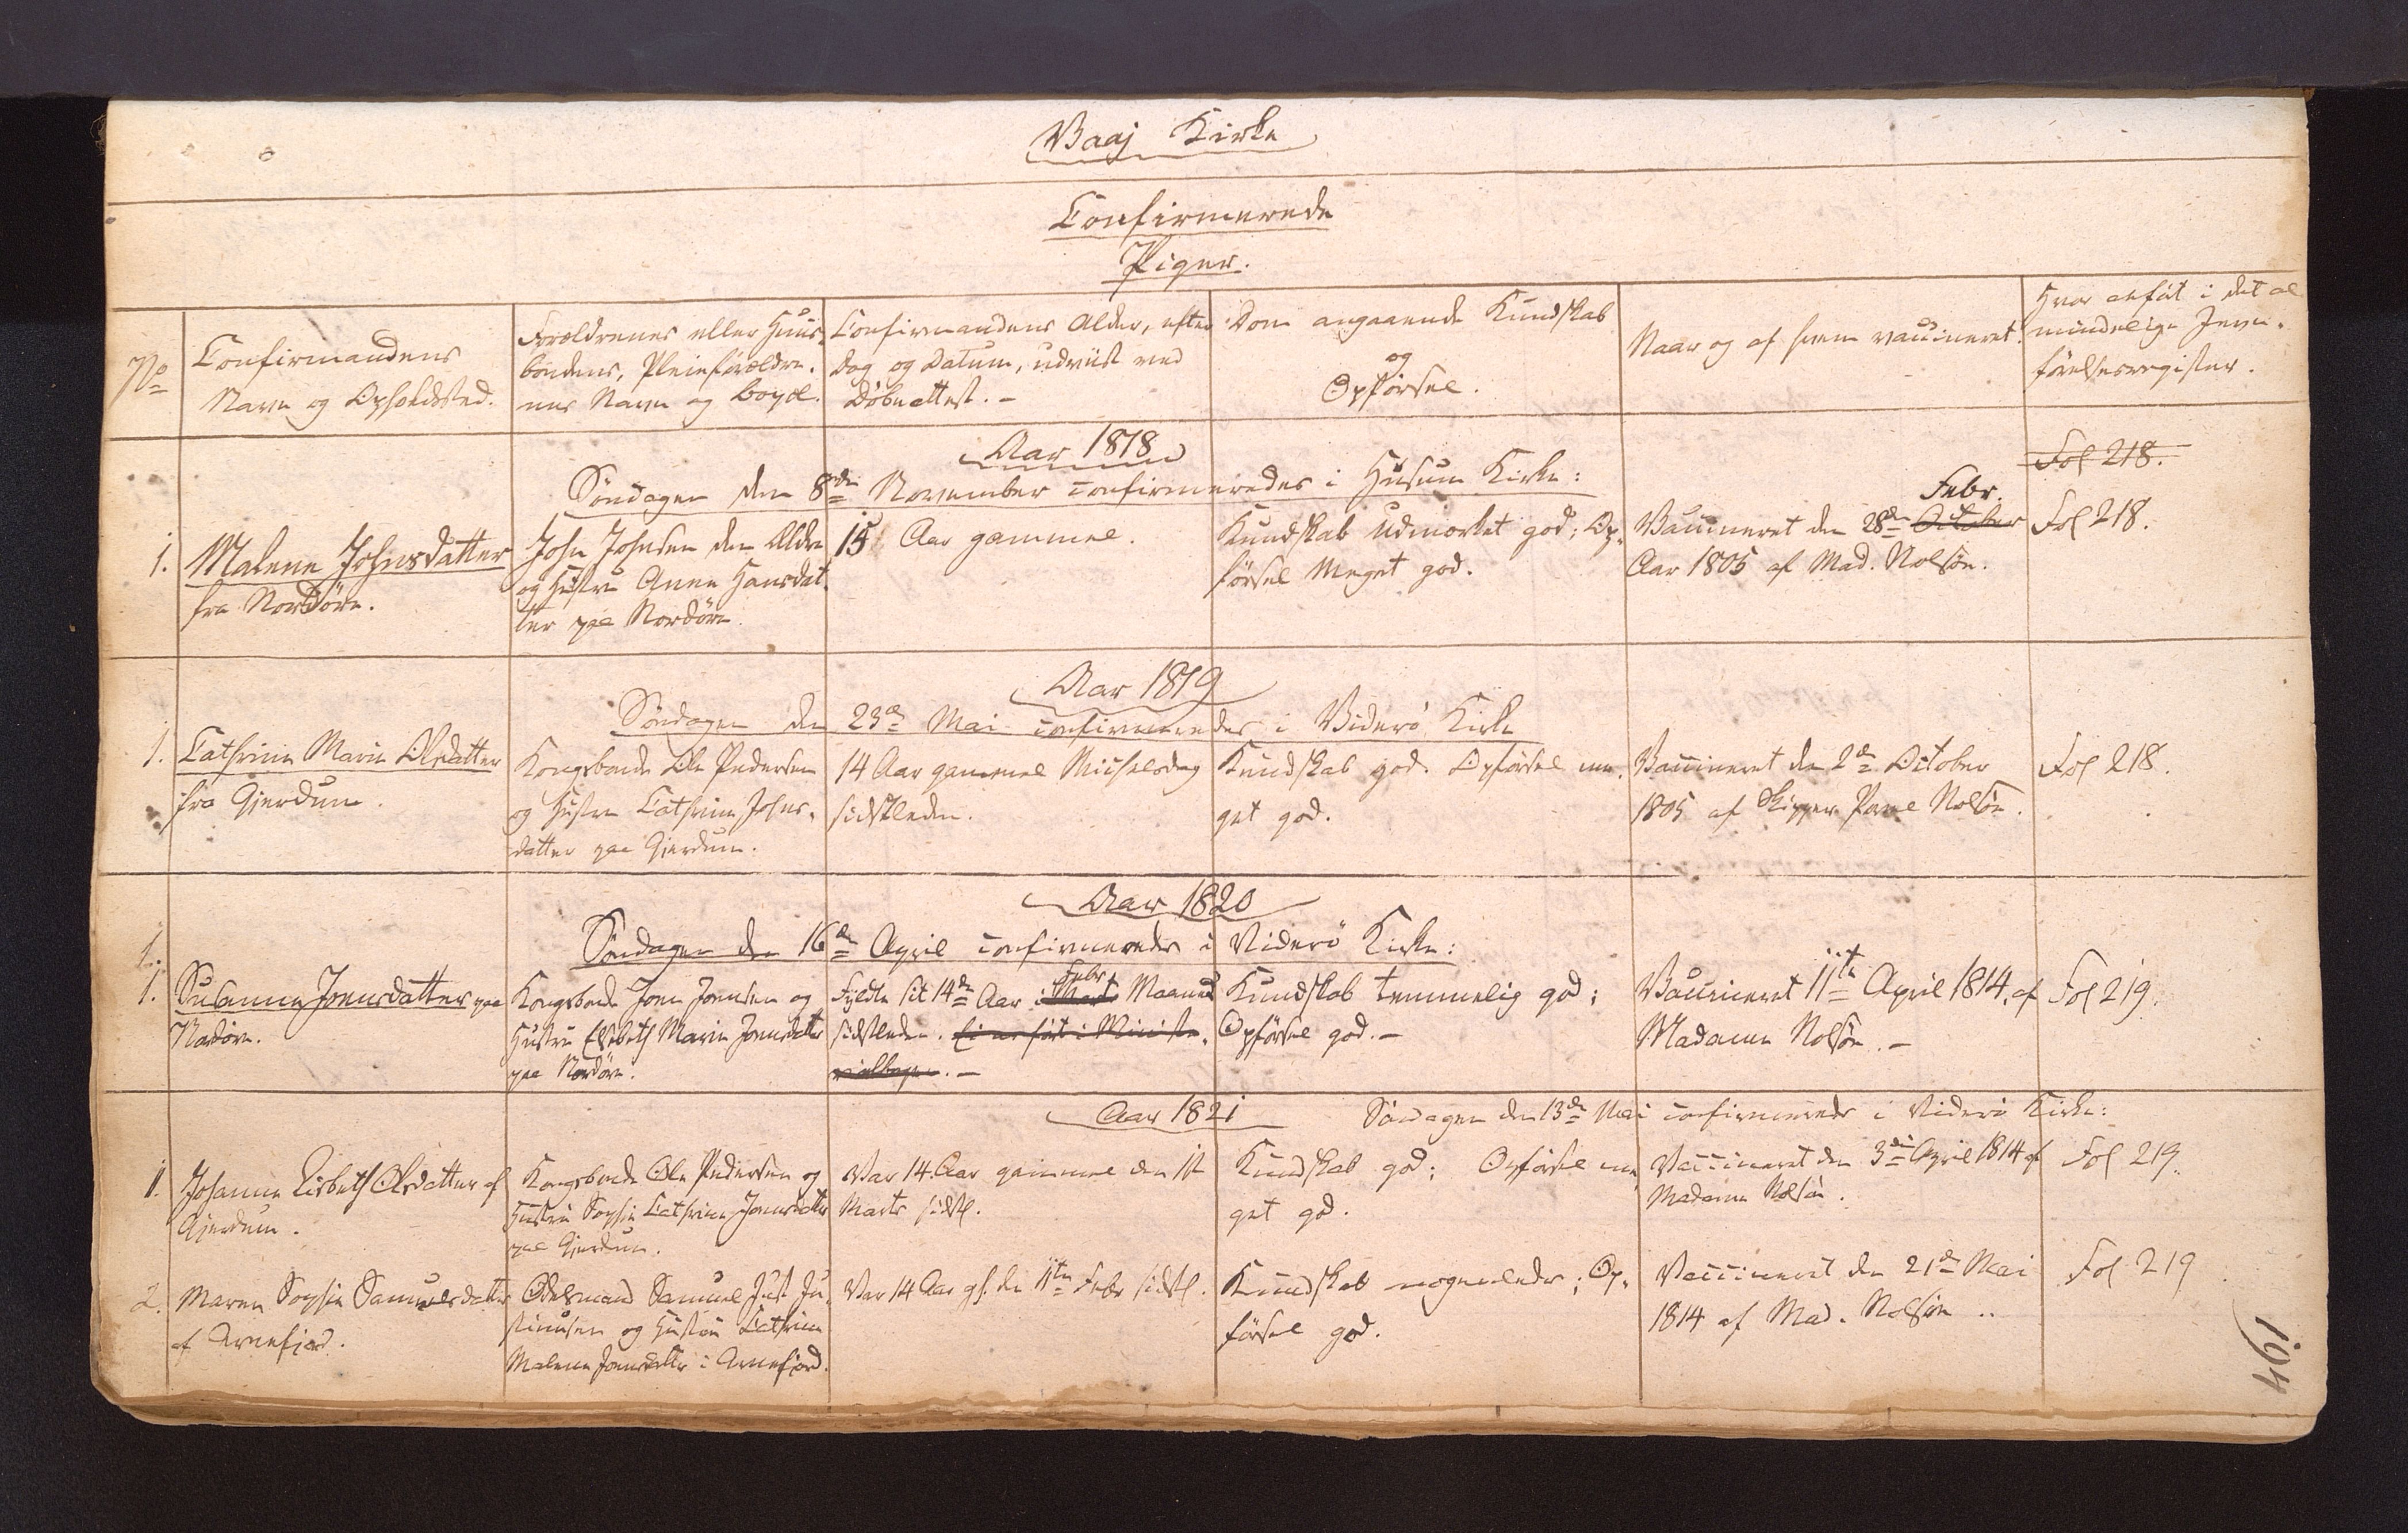 Vaaj Kirke
Confirmerede
Piger.
No
Confirmandens
Navn og Opholdsted.
Forældrenes eller Huus-
bondens, Pleieforældre-
nes Navn og Bopæl.
Confirmandens Alder, efter
Dag og Datum, udviist ved
Döbeattest. -
Dom angaaende Kundskab
og
Opførsel.
Naar og af hvem vaccineret.
Hvor anført i det al
mindelige Jevn-
førelsesregister.
Aar 1818
Söndagen den 8de November confirmeredes i Husum Kirke:
Fol 218.
1.
Malene Johnsdatter
fra Nordöre.
John Johnsen den Ældre
og Hustru Anna Hansdat
ter paa Nordöre.
15 Aar gammel.
Kundskab udmærket god; Op-
førsel Meget god.
Febr.
Vaccineret den 28de October
Aar 1805 af Mad. Nolsöe.
Fol 218.
Aar 1819
Söndagen den 23de Mai confirmeredes i Viderö Kirke
1.
Cathrine Marie Olsdatter
fra Gjerdum.
Kongsbonde Ole Pedersen
og Hustru Cathrine Johns-
datter paa Gjerdum.
14 Aar gammel Michelsdag
sidstleden.
Kundskab god. Opførsel me-
get god.
Vaccineret den 2de October
1805 af Skipper Povel Nolsöe.
Fol 218.
Aar 1820
Söndagen den 16de April confirmeredes i Viderö Kirke:
1.
1.
Susanna Joensdatter paa
Nordöre.
Kongsbonde Joen Joensen og
Hustru Elsebeth Marie Joensdatter
paa Nordöre.
Febr.
Fyldte sit 14de Aar i Marts Maaned
sidstleden. Ei anført i Ministe-
rialbogen. -
Kundskab temmelig god;
Opførsel god. -
Vaccineret 11te April 1814, af
Madame Nolsöe. -
Fol 219.
Aar 1821
Söndagen den 13de Mai confirmerede i Viderö Kirke:
1.
Johanne Lisbeth Olsdatter af
Gjerdum.
Kongsbonde Ole Pedersen og
Hustru Sophie Cathrine Joensdatter
paa Gjerdum.
Var 14 Aar gammel den 1st
Marts sidstl.
Kundskab god; Opførsel me
get god.
Vaccineret den 3die April 1814 af
Madame Nolsöe.
Fol 219.
2.
Maren Sophie Samuelsdatter
af Arnefjord.
Odelsmand Samuel Just Ju-
stinusen og Hustru Cathrine
Malene Joensdatter i Arnefjord.
Var 14 Aar gl. den 11te Febr sidstl.
Kundskab nogenledes; Op-
førsel god.
Vaccineret den 21de Mai
1814 af Mad. Nolsöe ..
Fol 219
194